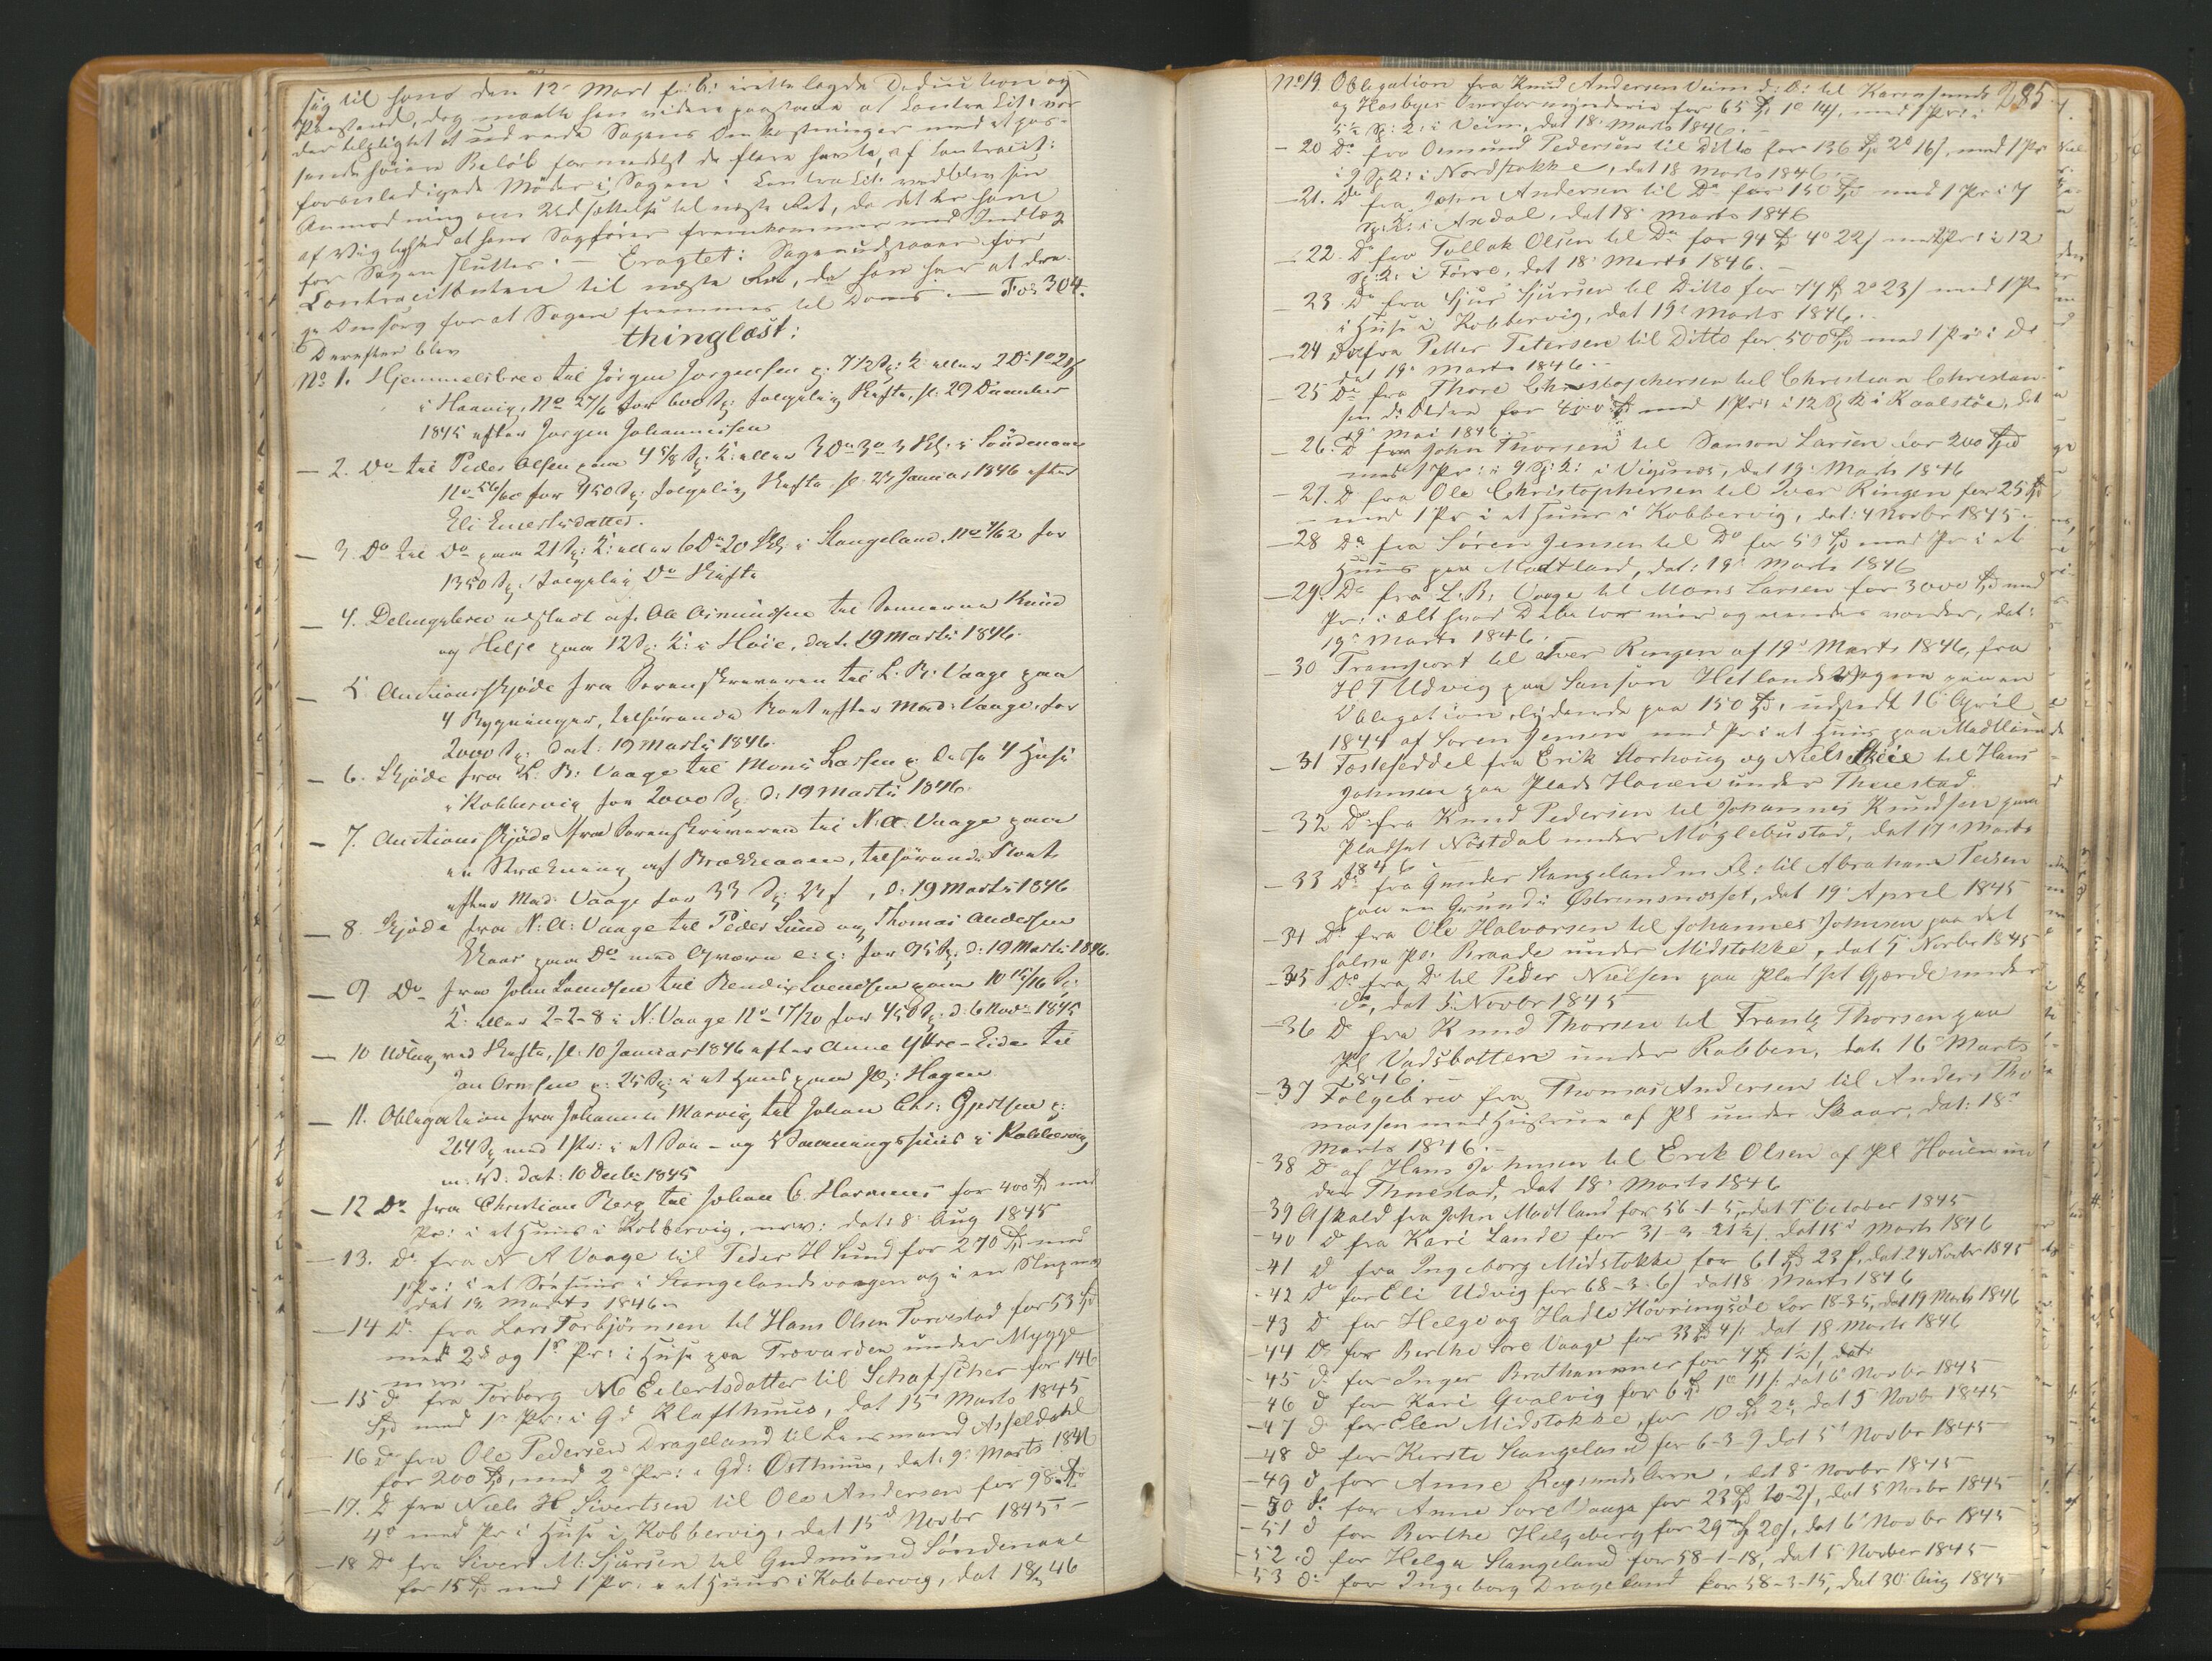 sig til hans den 12' Marts f: A: irettelagde Deduction og
Paastand, dog maatte han videre paastaae at Contra Cit: vor
der tilpligtet at udrede Sagens Omkostninger med et pas-
sende høiere Beløb formedelst de flere første, af Contracit:
foranledigede Møder i Sagen. Contra Cit: vedblev sin
Anmodning om Udsættelse til næste Ret, da det er ham
af Vigtighed at hans Sagfører fremkommer med Indlæg
for Sagen sluttes. — Eragtet: Sagen udsættes for
Contracitanten til næste Ret, da han har at dra-
ge Omsorg for at Sagen fremmes til Doms. — Fol 304.
Derefter blev
thinglæst:
No 1. Hjemmelsbrev til Jörgen Jorgensen p. 7 1/2 Sp: K: eller 2 D: 1 o 21 f
i Haavig, No 27/6 for 600 Sp: ifølge Skifte, sl: 29 December
1845 efter Jorgen Johannessen
— 2. Do til Peder Olsen paa 4 5/8 Sp: K: eller 3 Dr 3 o 3 Sk: i Söndenaae
No 56/60 for 450 Sp: ifølge Skifte sl: 23 Januar 1846 efter
Eli Einertsdatter.
— 3. Do til Do paa 21 Sp: K: eller 6 Dr 20 Sk: i Stangeland No 4/62 for
1350 Sp. ifølge Do Skifte
— 4. Delingsbrev udstedt af Ole Asmundsen til Sønnerne Knud
og Helje paa 12 Sp: K: i Høie, dat. 19 Marts 1846.
— 5. Auctionsskjøde fra Sorenskriveren til L. B. Vaage paa
4 Bygninger, tilhørende Boet efter Mad: Vaage, for
2000 Sp: dat: 19 Marts 1846.
— 6. Skjøde fra L: B: Vaage til Mons Larsen p. disse 4 Huse
i Kobbervig for 2000 Sp: d: 19 Marts 1846.
— 7. Auctionsskjøde fra Sorenskriveren til N. A. Vaage paa
en Strækning af Brækkeaaen, tilhørende Boet
efter Mad: Vaage for 33 Sp: 23 f, d: 19 Marts 1846
— 8. Skjøde fra N: A: Vaage til Peder Lund og Thomas Andersen
Skaar paa Do med Qværn e: c: for 95 Sp: d: 19 Marts 1846.
— 9 Do fra John Svendsen til Bendix Svendsen paa 10 15/16 Sp:
K: eller 2-2-8 i N: Vaage No 17/20 for 450 Sp: d: 6 Novr 1845
— 10 Udlæg ved Skifte, sl: 10 Januar 1846 efter Anne Yttre-Eide til
Jan Ormsen p: 25 Sp: i et Huus paa Pl: Hagen
— 11. Obligation fra Johannes Marvig til Johan Chr: Gjertsen p:
264 Sp med 1 Pr: i et Søe- og Vaaningshuus i Kobbervig
m: V: dat: 10 Decbr 1845
— 12 Do fra Christian Berg til Johan C. Hermens for 400 Spd med
Pr: i et Huus i Kobbervig, mv: dat: 8' Aug 1845
— 13. Do fra N A Vaage til Peder H Lund for 270 Spd med
1 Pr: i et Søehuus i Stangelandsvaagen og i en Slup mv
dat 19 Marts 1846
— 14 Do fra Lars Torbjörnsen til Hans Olsen Torvestad for 53 Spd
med 2d og 1s Pr: i Huse paa Trovarden under Mygge
m. v.
— 15 d fra Torborg M Eilertsdatter til Schafscher for 146
Spd med 1s Pr: i Gd Klafthuus, dat 15' Marts 1845
16 Do fra Ole Pedersen Drageland til Lensmand Asseldahl
for 200 Spd, med 2s Pr: i Gd: Østhuus, dat: 9' Marts 1846
— 17. D fra Niels H Sivertsen til Ole Andersen for 98 Spd
4o med Pr i Huse i Kobbervig, dat 15d Novbr 1845 —
— 18 Do fra Sivert M. Sjursen til Gudmund Søndenaae
for 15 Spd med 1 Pr: i et Huus i Kobbervig, dat 18/3 46
285
No 19. Obligation fra Knud Andersen Veim d: Æ: til Karmsunds
og Hasbyes Overformynderie for 65 Spd 1o 14 f, med 1 Pr: i
5 1/2 Sp: K: i Veim, dat 18' Marts 1846. —
— 20 Do fra Osmund Pedersen til ditto for 136 Spd 2o 16 f, med 1 Pr
i 9 Sp: K: i Nordstokke, dat 18 Marts 1846
— 21. Do fra John Andersen til Do for 150 Spd med 1 Pr: i 7
Sp: K: i Axdal, dat 18' Marts 1846
— 22. Do fra Tollak Olsen til Do for 94 Spd 4o 22 f med 1 Pr: i 12
Sp: K: i Førre, dat 18' Marts 1846. —
— 23 Do fra Sjur Sjursen til Ditto for 77 Spd 2o 23 f med 1 Pr
i Huse i Kobbervig, dat 19' Marts 1846. —
— 24 Do fra Petter Petersen til Ditto for 500 Spd med 1 Pr: i Do
dat 19' Marts 1846. —
— 25 Do fra Thore Christophersen til Christian Christian-
sen d: Ældre for 400 Spd med 1 Pr: i 12 Sp K i Kaalstøe, dat
19' Mai 1846
— 26. D fra John Thorsen til Samson Larsen for 200 Spd
med 1 Pr: i 9 Sp: K: i Vigsnæs, dat 19' Marts 1846
— 27. D fra Ole Christophersen til Iver Ringen for 25 Spd
— med 1 Pr i et Huus i Kobbervig, dat: 4 Novbr 1845 —
— 28 Do fra Søren Jensen til Do for 50 Spd med Pr i et
Huus paa Madtland, dat: 19' Marts 1846
— 29. Do fra L. B. Vaage til Mons Larsen for 3000 Spd med
Pr: i alt hvad Debitor eier og eiendes vorder, dat:
19' Marts 1846.
30 Transport til Iver Ringen af 19' Marts 1846, fra
H T Udvig paa Samson Hetlands Vegne paa en
Obligation, lydende paa 150 Spd, udstedt 16' April
1844 af Soren Jensen med Pr i et Huus paa Madtland
— 31 Festeseddel fra Erik Storhoug og Niels Skeie til Hans
Johnsen paa Plads Houen under Thuestad
— 32 Do fra Knud Pedersen til Johannes Knudsen paa
Pladset Nöstdal under Møglebustad, dat 17' Marts
1846
— 33 Do fra Gunder Stangeland m. Fl: til Abraham Teisen
paa en Grund i Østremsnæsset, dat 19' April 1845
— 34 Do fra Ole Halvorsen til Johannes Johnsen paa det
halve Pl: Braade under Midstokke, dat 5' Novbr 1845
— 35 Do fra Do til Peder Nielsen paa Pladset Gjerde under
do, dat 5' Novbr 1845
— 36 Do fra Knud Thorsen til Frantz Thorsen paa
Pl Vadsbotten under Robben, dat 16' Marts
1846.
— 37 Følgebrev fra Thomas Andersen til Anders Tho-
massen med Hustrue af Pl under Skaar, dat: 18'
Marts 1846. —
— 38 D af Hans Johnsen til Erik Olsen af Pl Houen un
der Thuestad, dat 18' Marts 1846
— 39 Afkald fra John Madtland for 56-1-5, dat 1' October 1845
— 40 D fra Kari Lande for 31-3-21 1/2 f. dat 15' Marts 1846
— 41 D fra Ingeborg Midstokke for 61 Spd 23 f, dat 24 Novbr 1845
— 42 Do for Eli Udvig for 68-3-6 f dat 18 Marts 1846
— 43 D for Helge og Hadle Høvringsøe for 18-3-5, dat 19 Marts 1846
— 44 Do for Berthe Sore Vaage for 33 Spd 4 f: dat 18 Marts 1846
— 45 d. for Inger Brathammer for 4 Spd 1 1/2 f, dat:
— 46 d for Kari Qvalvig for 6 Spd 1o 11 f: dat 6' Novbr 1845
— 47 d for Elen Midstokke, for 10 Spd 2o, dat 5' Novbr 1845
— 48 d for Kirsti Stangeland for 6-3-9 dat 5' Novbr 1845
— 49 d for Anne Rasmusdatter, dat 8' Novbr 1845
— 50 do for Anne Sore Vaage for 23 Spd 20-2 f, dat 5 Novbr 1845
— 51 d for Berthe Helgeberg for 29 Spd 20 f, dat 6' Novbr 1845
— 52. d for Helga Stangeland for 58-1-18, dat 5 November 1845
53 d: for Ingeborg Drageland for 58-3-15, dat 30' Aug 1845